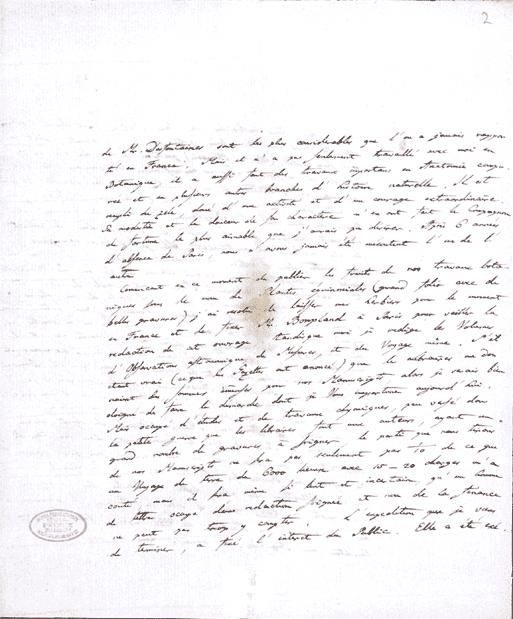 2
de Mr. Desfontaines sont les plus considerables que l'on a jamais rappor
té en France. Mais il n'a pas seulement travaillé avec moi en
Botanique, il a aussi fait des travaux importans en Anatomie compa
rée et en plusieurs autres branches d'histoire naturelle. Il est
rempli de zele, doué d'une activité et d'un courage extraordinaire.
Sa modestie et la douceur de son charactère m'en ont fait le Compagnon
de fortune le plus aimable que j'aurais pu desirer. Après 6 années
d'absence de Paris, nous n'avons jamais été mecontent l'un de l'
autre.
Comencant en ce moment de publier les fruits de nos travaux bota
niques sous le nom de Plantes équinoxiales (grand folio avec de
belles gravures) j'ai resolu de laisser mes herbiers pour le moment
en France et de fixer Mr. Bonpland à Paris pour veiller la
redaction de cet ouvrage tandisque moi je redige les Volumes
d'Observations astronomiques, de Mesures, et du Voyage même. S'il
etait vrai (ce que les Gazettes ont anoncé) que les libraires me don
naient des sommes pour nos Manuscripts alors je serais bien
eloigné de faire la demande dont je Vous importune aujourd'hui.
Mais ocupé d'études et de travaux chymiques, peu versé dans
la petite guerre que les libraires font aux auteurs, ayant un
grand nombre de gravures à soigner, le parti que nous tirons
de nos Manuscripts ne sera pas seulement pas 1/10 de ce que
un Voyage de terre de 6000 lieues avec 15 - 20 charges m'a
couté mais il sera même si lent et incertain qu'un homme
de lettre ocupé d'une redaction soignée et non de la finance
ne peut pas trop y compter. L'expedition que je viens
de terminer, a fixé l'interet du Public. Elle a été exé-